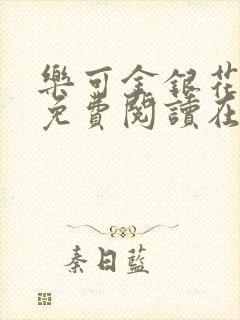 樂可金銀花
免費閱讀在
秦日藍